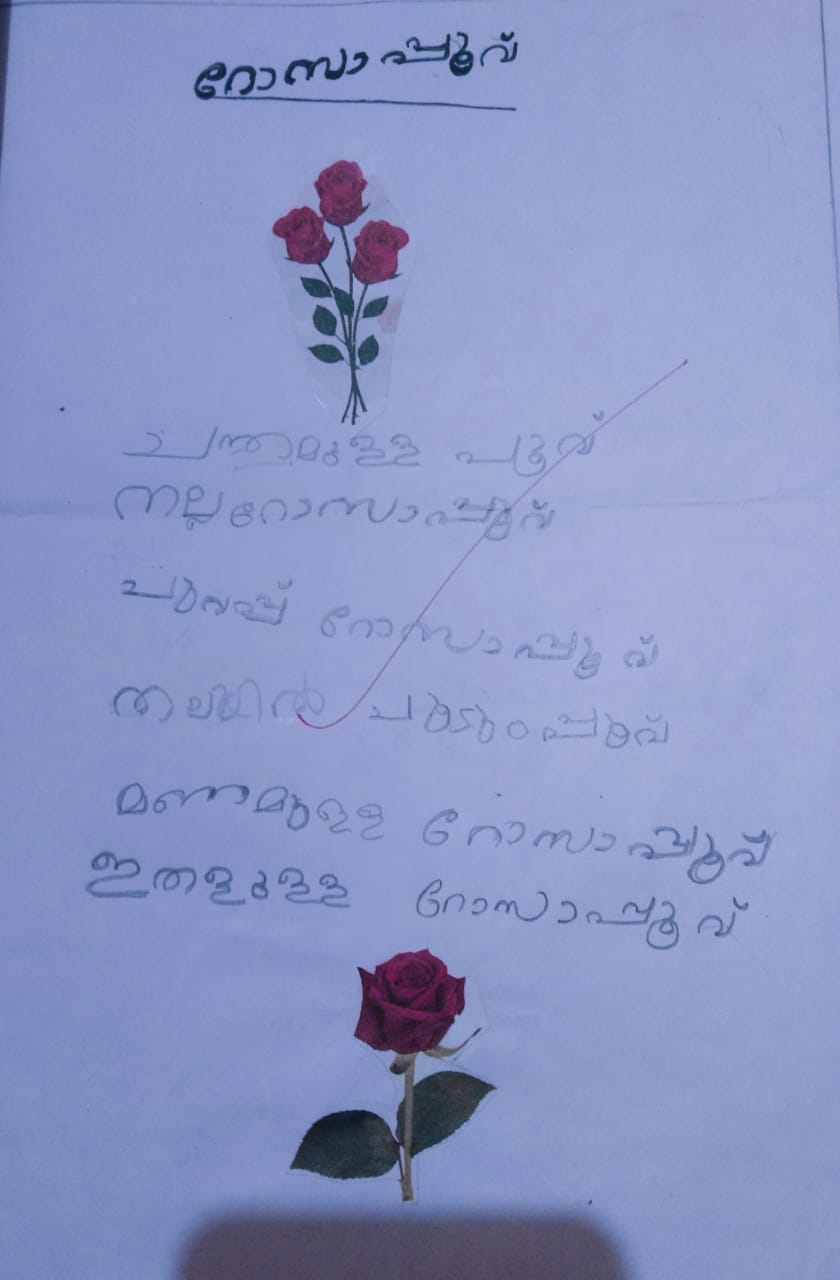 റോസാപ്പൂവ്
ചന്തമുള്ള പൂവ്
നല്ലറോസാപ്പൂവ്
ചുവപ്പ് റോസാപ്പൂവ്
തലയിൽ ചുടുംപ്പൂവ്
മണമുള്ള റോസാപ്പൂവ്
ഇതളുള്ള റോസാപ്പൂവ്